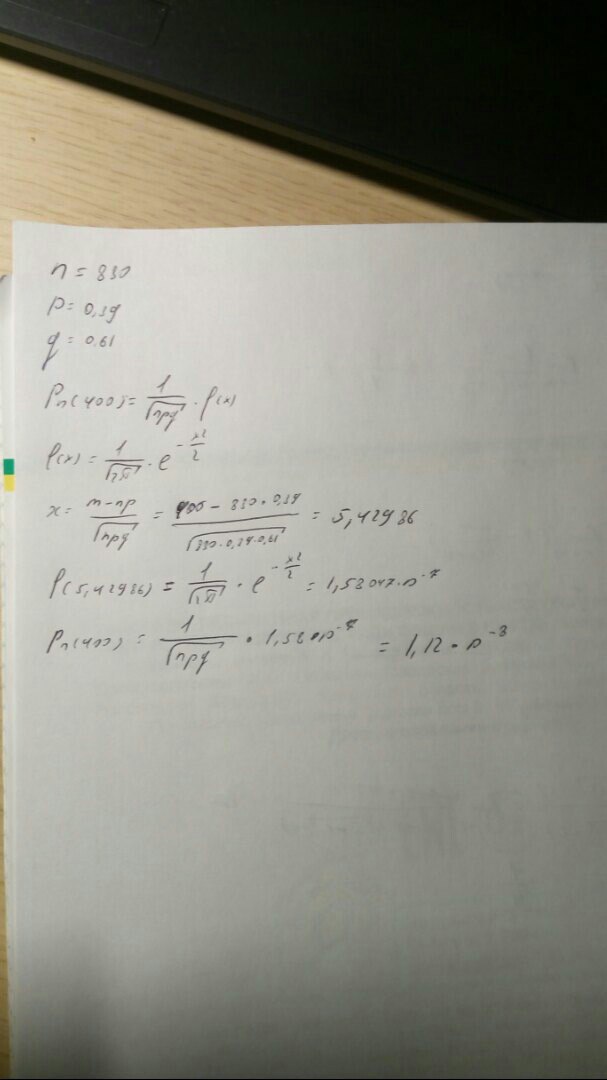 n = 830
p = 0,39
q = 0,61
Pn(400) = 1/√npq · φ(x)
φ(x) = 1/√2π · e^(-x²/2)
x = m-np/√npq = 400 - 830 · 0,39/√830·0,39·0,61 = 5,42986
φ(5,42986) = 1/√2π · e^(-x²/2) = 1,58047·10^-7
Pn(400) = 1/√npq · 1,58·10^-7 = 1,12 · 10^-8